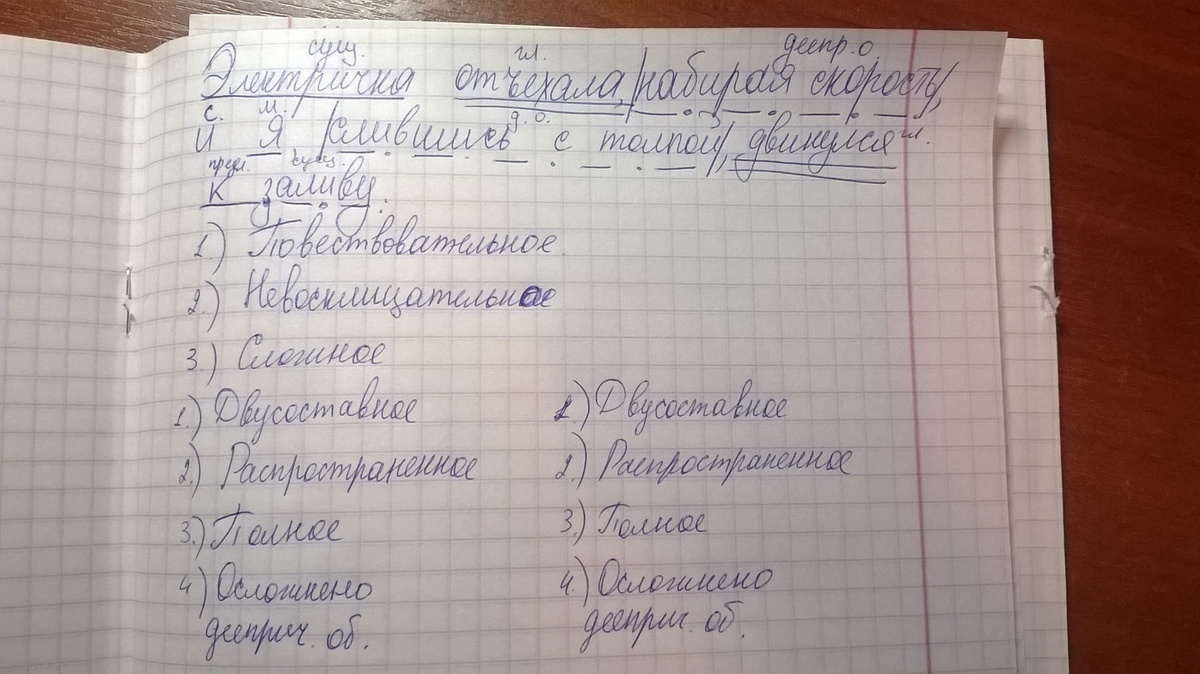 сущ. гл. деепр. о
Электричка отъехала, набирая скорость,
с. м. д. о.
и я, слившись с толпой, двинулся гл.
предл. сущ.
к заливу.
1.) Повествовательное.
2.) Невосклицательное
3.) Сложное
1.) Двусоставное 1.) Двусоставное
2.) Распространенное 2.) Распространенное
3.) Полное 3.) Полное
4) Осложнено 4.) Осложнено
дееприч. об. дееприч. об.